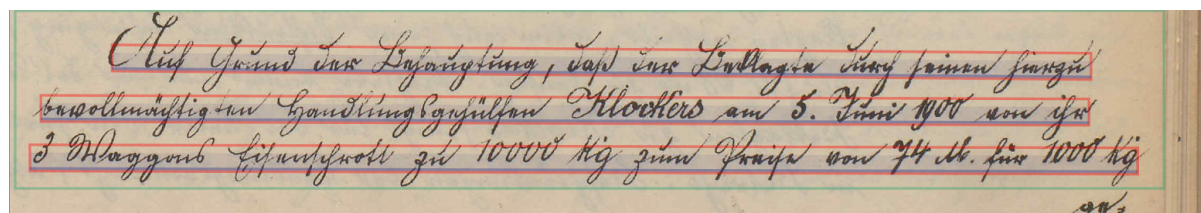 Auf Grund der Behauptung, daß der Beklagte durch seinen hierzu
bevollmächtigten Handlungsgehülfen Klockers am 5. Juni 1900 von ihr
3 Waggons Eisenschrott zu 10000 kg zum Preise von 74 M. für 1000 kg
ge-